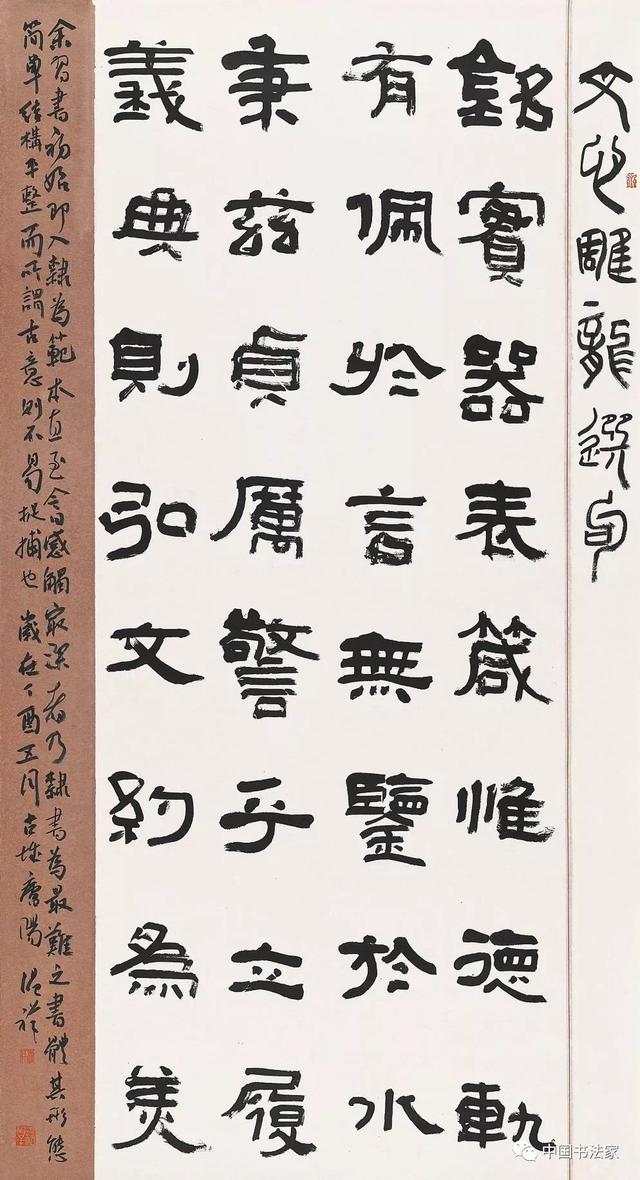 文心雕龍選句
銘實器表箴惟德軌
有佩於言無鑒於水
秉茲貞厲警乎立履
義典則弘文約為美
余習書初始即入隸為範本直至今日感觸最深者乃隸書為最難之書體其形態
簡單結構平整而所謂古意則不易捉捕也歲在丁酉五月古城
中国书法家